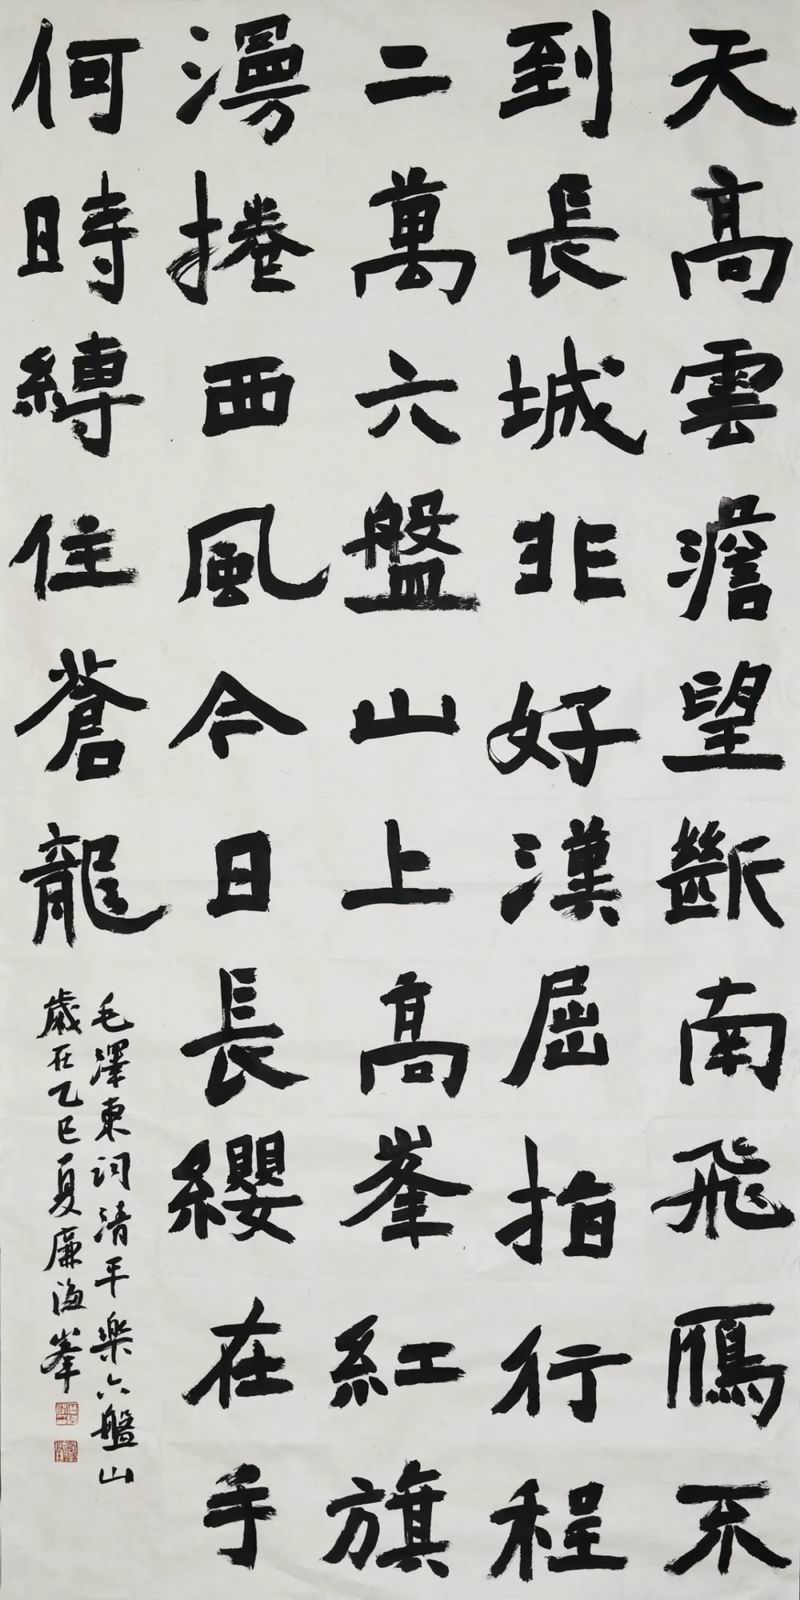 天高雲澹望斷南飛鴈不
到長城非好漢屈指行程
二萬六盤山上高峯紅旗
漫捲西風今日長纓在手
何時縛住蒼龍
毛澤東詞清平樂六盤山
歲在乙巳夏廉海峯